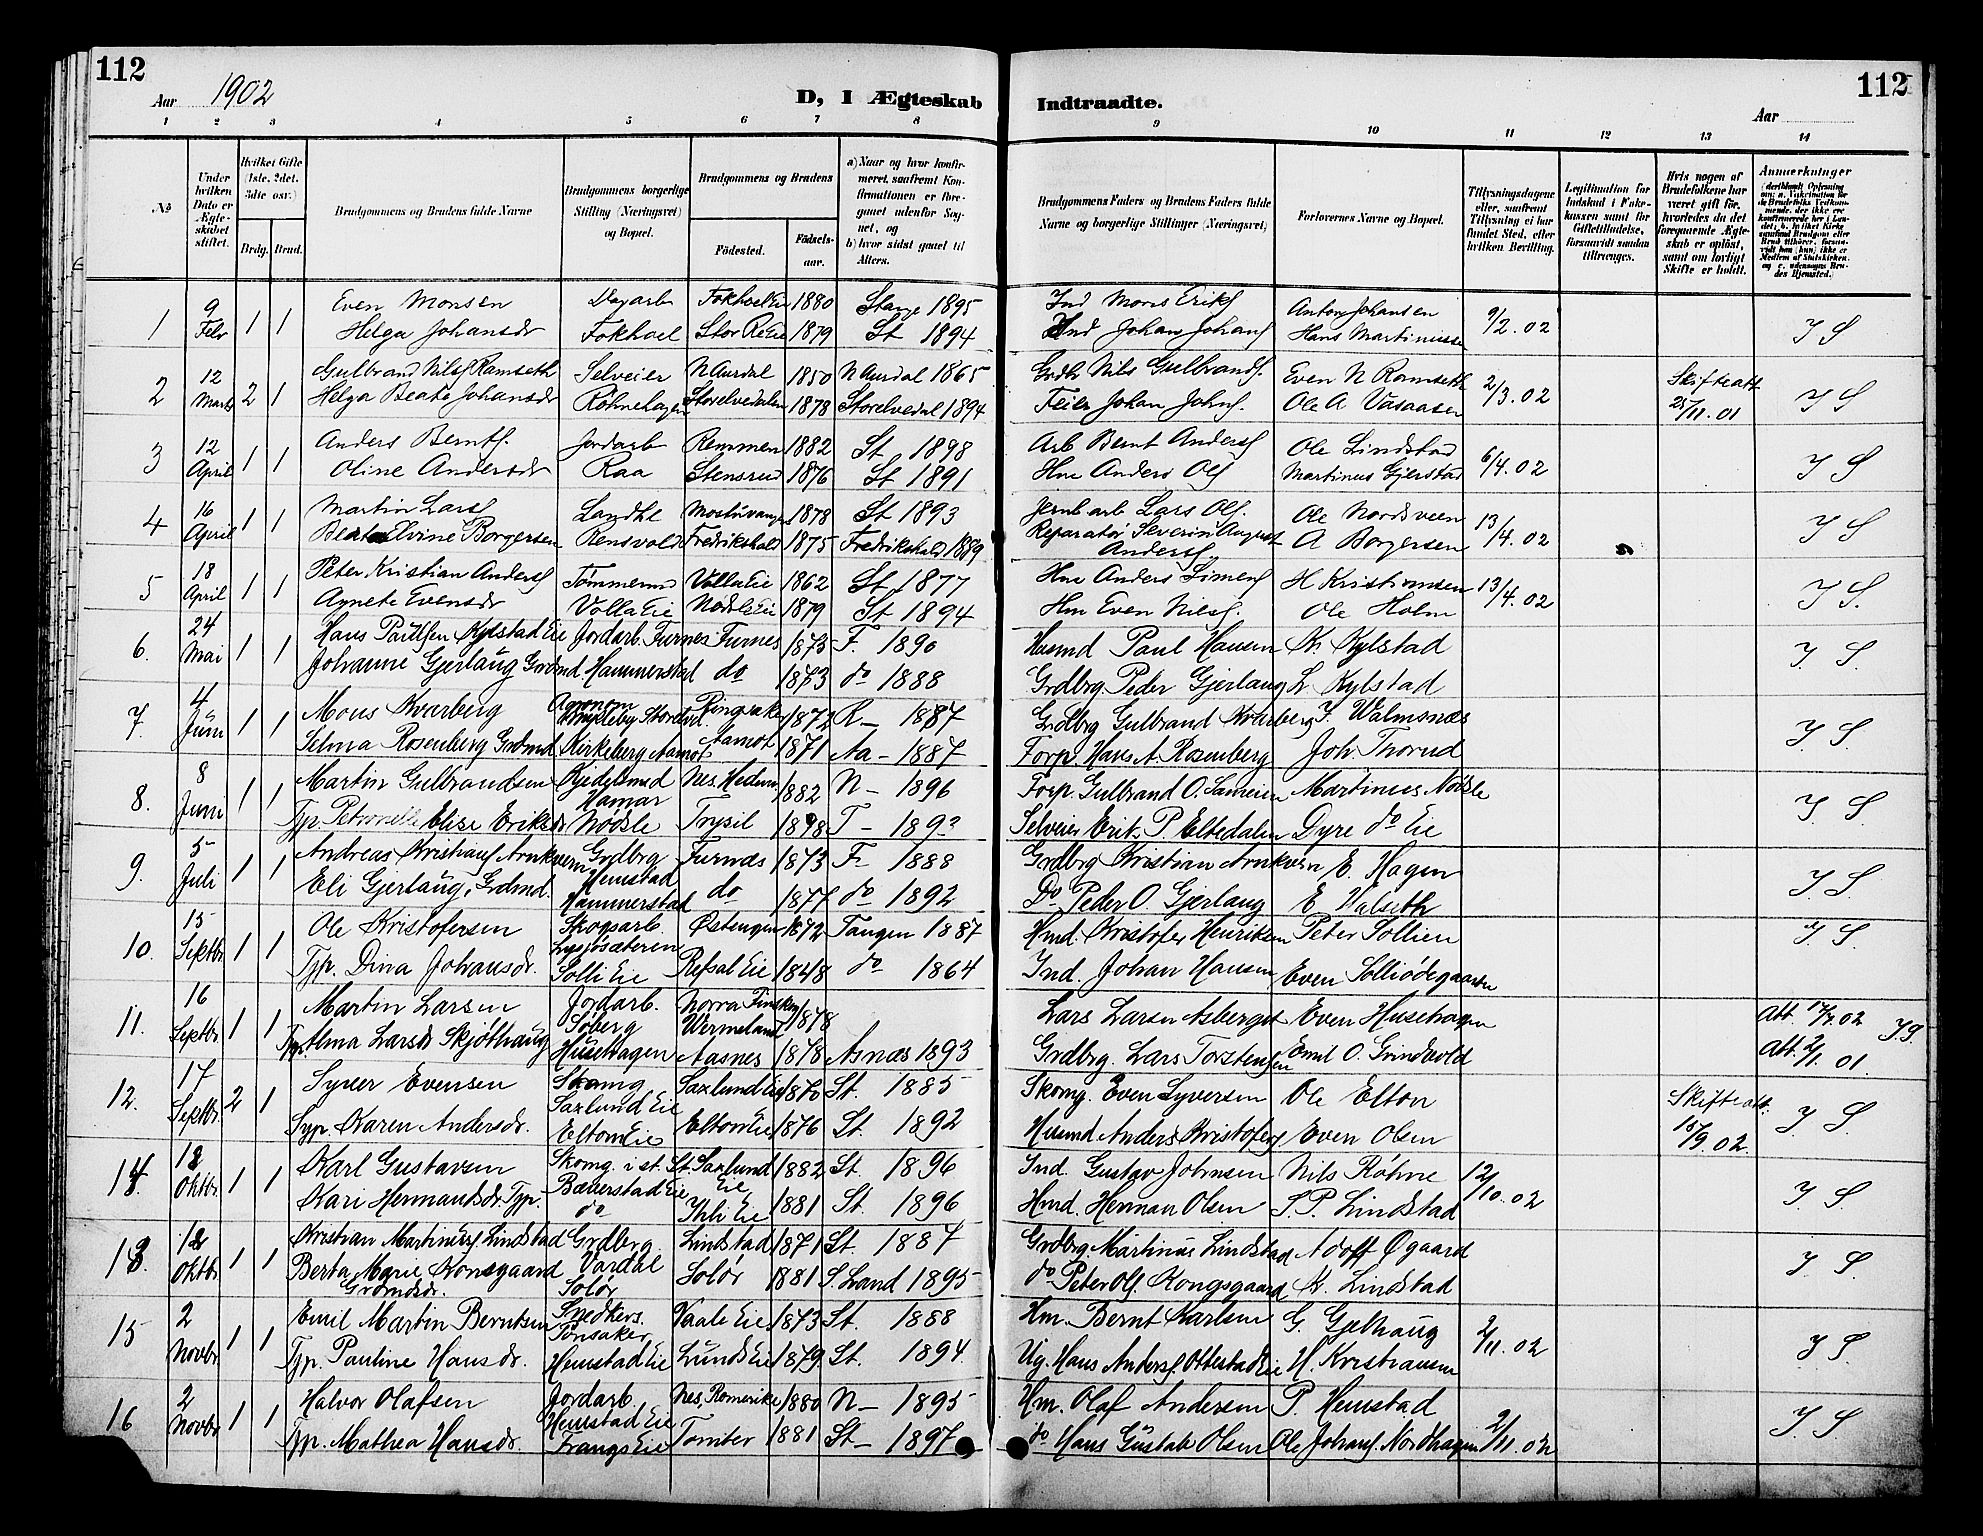 112
Aar 1902
D, I Ægteskab Indtraadte.
112
Aar
1 2 3 4 5 6 7 8 9 10 11 12 13 14
No
Under hvilken Dato er Ægteskabet stiftet.
Hvilket Gifte (1ste, 2det, 3die osv.)
Brdg. Brud.
Brudgommens og Brudens fulde Navne
Brudgommens borgerlige Stilling (Næringsvei) og Bopæl.
Brudgommens og Brudens
Födested. Födsels-aar.
a) Naar og hvor konfirmeret, saafremt Konfirmationen er foregaaet udenfor Sognet, og
b) hvor sidst gaaet til Alters.
Brudgommens Faders og Brudens Faders fulde Navne og borgerlige Stillinger (Næringsvei)
Forlovernes Navne og Bopæl.
Tillysningsdagene eller, saafremt Tillysning ei har fundet Sted, efter hvilken Bevilling.
Legitimation for Indskud i Fakkassen samt for Giftetilladelse, forsaavidt saadan tiltrænges.
Hvis nogen af Brudefolkene har været gift för, hvorledes da det foregaaende Ægteskab er oplöst, samt om lovligt Skifte er holdt.
Anmærkninger
1 9 Febr 1 1 Even Monsen Dagarb Fokhol Eie 1880 Stange 1895 Ind Mons Eriks Anton Johansen 9/2.02 J S
Helga Johansdr Fokhoel Stor Re Eie 1879 St 1894 Ind Johan Johans Hans Martiniussen
2 12 Marts 2 1 Gulbrand Nils Ramseth Selveier N Aurdal 1850 N Aurdal 1865 Grdbr Nils Gulbrands. Even N Ramseth 2/3.02 Skifteatt 25/11.01 J S
Helga Beate Johansdr Röhnehagen Storelvedalen 1878 Storelvedal 1894 Feier Johan Johns. Ole A Vasaasen
3 12 April 1 1 Anders Bernts. Jordarb Remmen 1882 St 1898 Arb Bernt Anders Ole Lindstad 6/4.02 J S
Oline Andersdr Raa Stensrud 1876 St 1891 Hm Anders Ols Martinus Gjerstad
4 16 April 1 1 Martin Lars Landhl Mostuvangen 1878 St 1893 Jernb arb Lars Ols. Ole Nordsveen 13/4.02 J S
Beate Elvine Borgersen Rensvold Fredrikshald 1875 Fredrikshald 1889 Reparatör Severin August Anders. A Borgersen
5 18 April 1 1 Peter Kristian Anders Tömmerm Volla Eie 1862 St 1877 Hm Anders Simens H Kristiansen 13/4.02 J S.
Agnete Evensdr Volla Eie Nödsle Eie 1879 St 1894 Hm Even Nils. Ole Holm
6. 24 Mai 1 1 Hans Paulsen Kylstad Eie Jordarb. Furnes Furnes 1875 F. 1890 Husmd Paul Hansen K. Kylstad J. S.
Johanne Gjerlaug Grdmd Hammerstad do 1873 do 1888 Grdbrg Peder Gjerlaug L Kylstad
7. 4 Juni 1 1 Mons Kvarberg Agronom Mykleby Storelvd. Ringsaker 1872 R – 1887 Grdbrg Gulbrand Kvarberg J. Walmsnæs J. S.
Selma Rosenberg Grdmd Kirkeberg Aamot Aamot 1871 Aa – 1887 Forp. Hans A. Rosenberg Joh. Thorud
8. 8 Juni 1 1 Martin Gulbrandsen Kjedelsmed Hamar Nes. Hedem. 1882 N – 1896 Forp. Gulbrand O. Sameien Martinus Nödsle J S.
Typ. Petronelle Elise Eriksdr Nödsle Trysil 1878 T – 1893 Selveier Erik P. Eltedalen Dyre do Eie
9. 5 Juli 1 1 Andreas Kristians Arnkvern Grdbrg Hemstad Furnæs 1873 F. 1888 Grdbrg Kristian Arnkvern E. Hagen J S.
Eli Gjerlaug, Grdmd. Hammerstad do 1877 do 1892 Do Peder O. Gjerlaug E Walseth
10. 15 Septbr 1 1 Ole Kristofersen Skogsarb. Lysjösæteren Östengen 1872 Tangen 1887 Hmd. Kristofer Henriksen Peter Sollien J. S.
Typ. Dina Johansdr. Solli Eie Refsal Eie 1848 do 1864 Ind. Johan Hansen Even Solliödegaarden
11. 16 Septbr 1 1 Martin Larsen Jordarb. Soberg Norra Finskog Wermeland 1878 Lars Larsen Asberget Even Husehagen Att. 17/9.02 J S.
Typ Alma Larsdr Skjöthaug Husehagen Aasnes 1878 Asnæs 1893 Grdbrg. Lars Torstensen Emil O. Grindvold Att. 2/1.01.
12. 17 Septbr 2 1 Syver Evensen Skomg Saxlund Eie Saxlund Eie 1870 St. 1885 Skomg. Even Syversen Ole Elton Skifteatt. 15/9.02. J S.
Typ. Karen Andersdr. Elton Eie Elton Eie 1876 St. 1892 Husmd Anders Kristofers Even Olsen
14. 18 Oktbr 1 1 Karl Gustavsen Skomg. i st. Bæverstad Eie St. Saxlund Eie 1882 St. 1896 Ind. Gustav Johnsen Nils Röhne 12/10.02 J S.
Kari Hermansdr. Typ. do Ihli Eie 1881 St. 1896 Hmd. Herman Olsen S. P. Lindstad
13. 18 Oktbr 1 1 Kristian Martinius Lindstad Grdbrg. Vardal Lindstad 1871 St. 1887 Grdbrg. Martinus Lindstad Adolf Ögaard J S.
Berta Marie Kongsgaard Grdmdsdr. Solör Solör 1881 S. Land 1895 do Peter Ols. Kongsgaard K. Lindstad
15 2 Novbr 1 1 Emil Martin Berntsen Snedkers. Tonsaker Vaale Eie 1873 St. 1888 Hm. Bernt Karlsen G. Gjelhaug 2/11.02 J S.
Typ. Pauline Hansdr. Hemstad Eie Lunds Eie 1879 St. 1894 Ug. Hans Anders. Ottestad Eie H. Kristiansen
16 2 Novbr 1 1 Halvor Olafsen Jordarb. Hemstad Eie Nes, Romerike 1880 N – 1895 Hm. Olaf Andersen P. Hemstad 2/11.02 J S.
Typ. Mathea Hansdr. Frangs Eie Tomter 1881 St – 1897 do Hans Gustab Olsen Ole Johans. Nordhagen